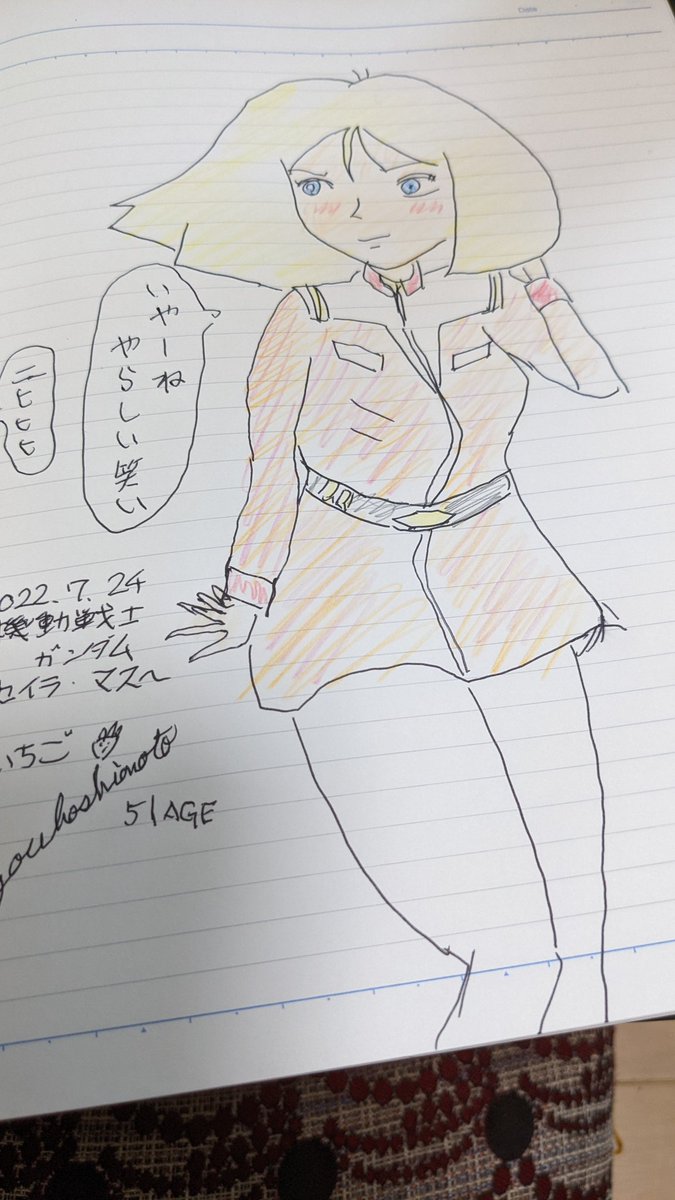 いやーね
やらしい笑い
ニヒヒヒ
022.7.24
機動戦士
ガンダム
セイラ・マス〜
いちご
51AGE